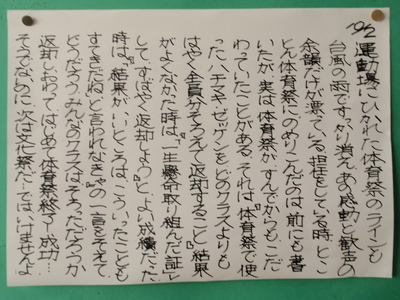 10/2 運動場にひかれた体育祭のラインも
台風の雨ですっかり消え、あの感動と歓声の
余韻だけが漂っている。担任をしている時、とこ
とん体育祭にのめりこんだのは前にも書
いたが、実は体育祭がすんでからもこだ
わっていたことがある。それは『体育祭で使
ったハチマキ、ゼッケンをどのクラスよりも
はやく全員分そろえて返却すること』。結果
がよくなかった時は、『一生懸命取り組んだ証と
して、すばやく返却しよう』と。よい成績だった
時は、『結果がいいところは、こういったことも
すてきだねと言われなきゃ』の一言をそえて。
どうだろう、みんなのクラスはそろっただろうか。
返却しおわって、はじめて体育祭終了、成功…。
そうでないのに、次は文化祭だ…では、いけませんよ